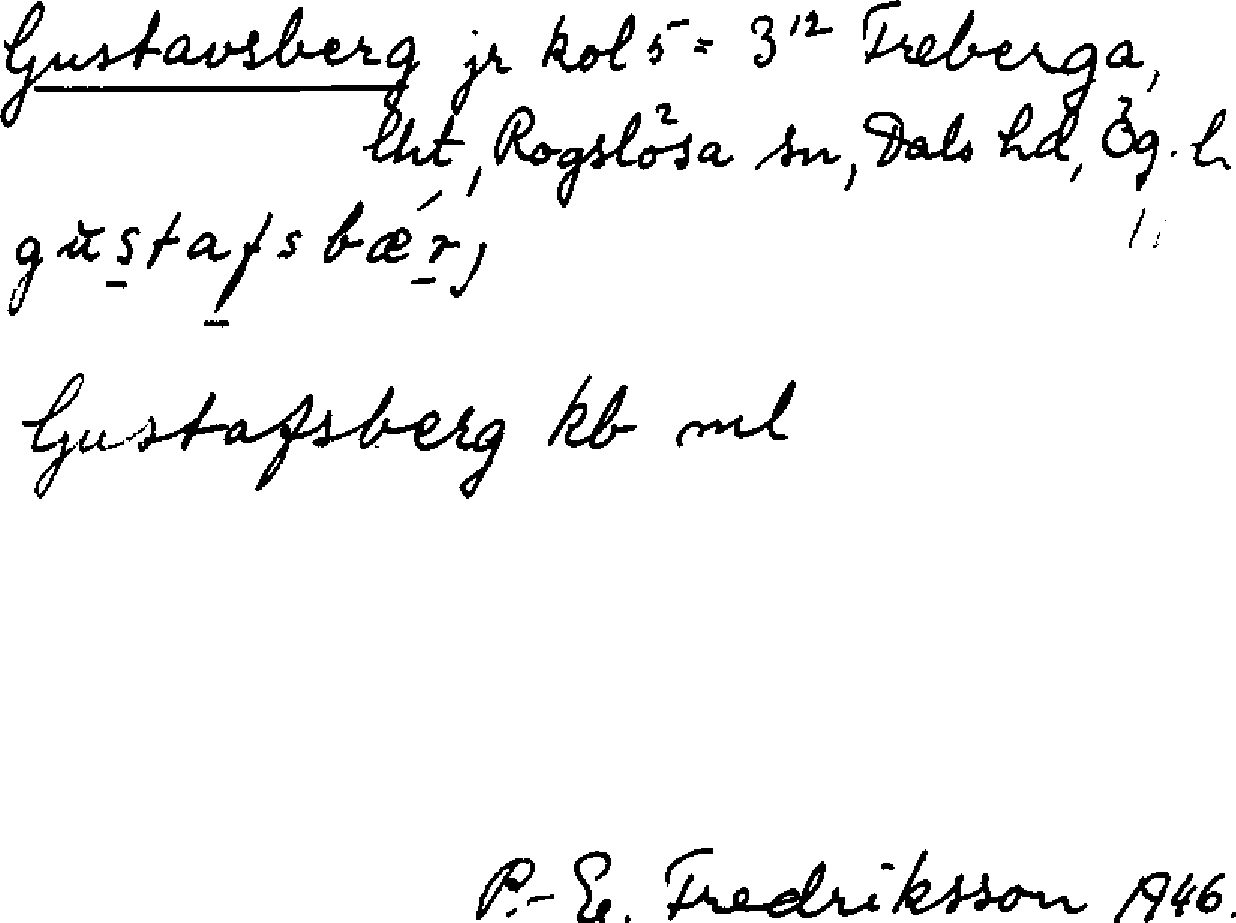 Gustavsberg jr kol 5 = 3¹² Treberga,
lht, Rogslösa sn, Dals hd, Ög. l
gŭstafsbǽr,
Gustafsberg kb ml
P.-E. Fredriksson 1946.